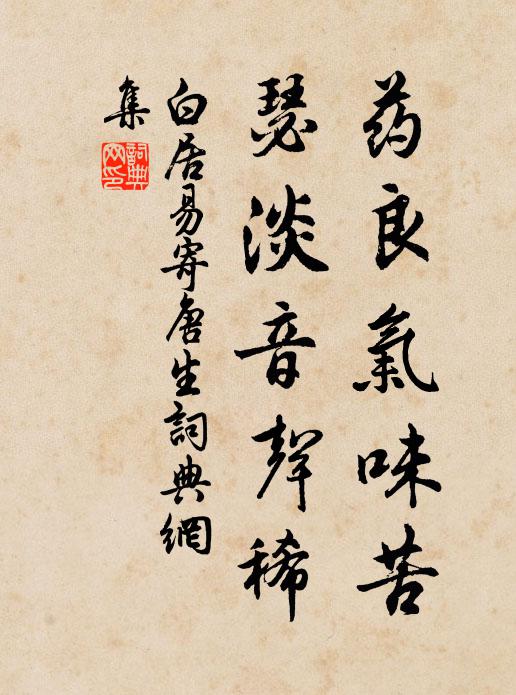 药良氣味苦
瑟淡音聲稀
白居易寄唐生詞典網
集
詞典
网印